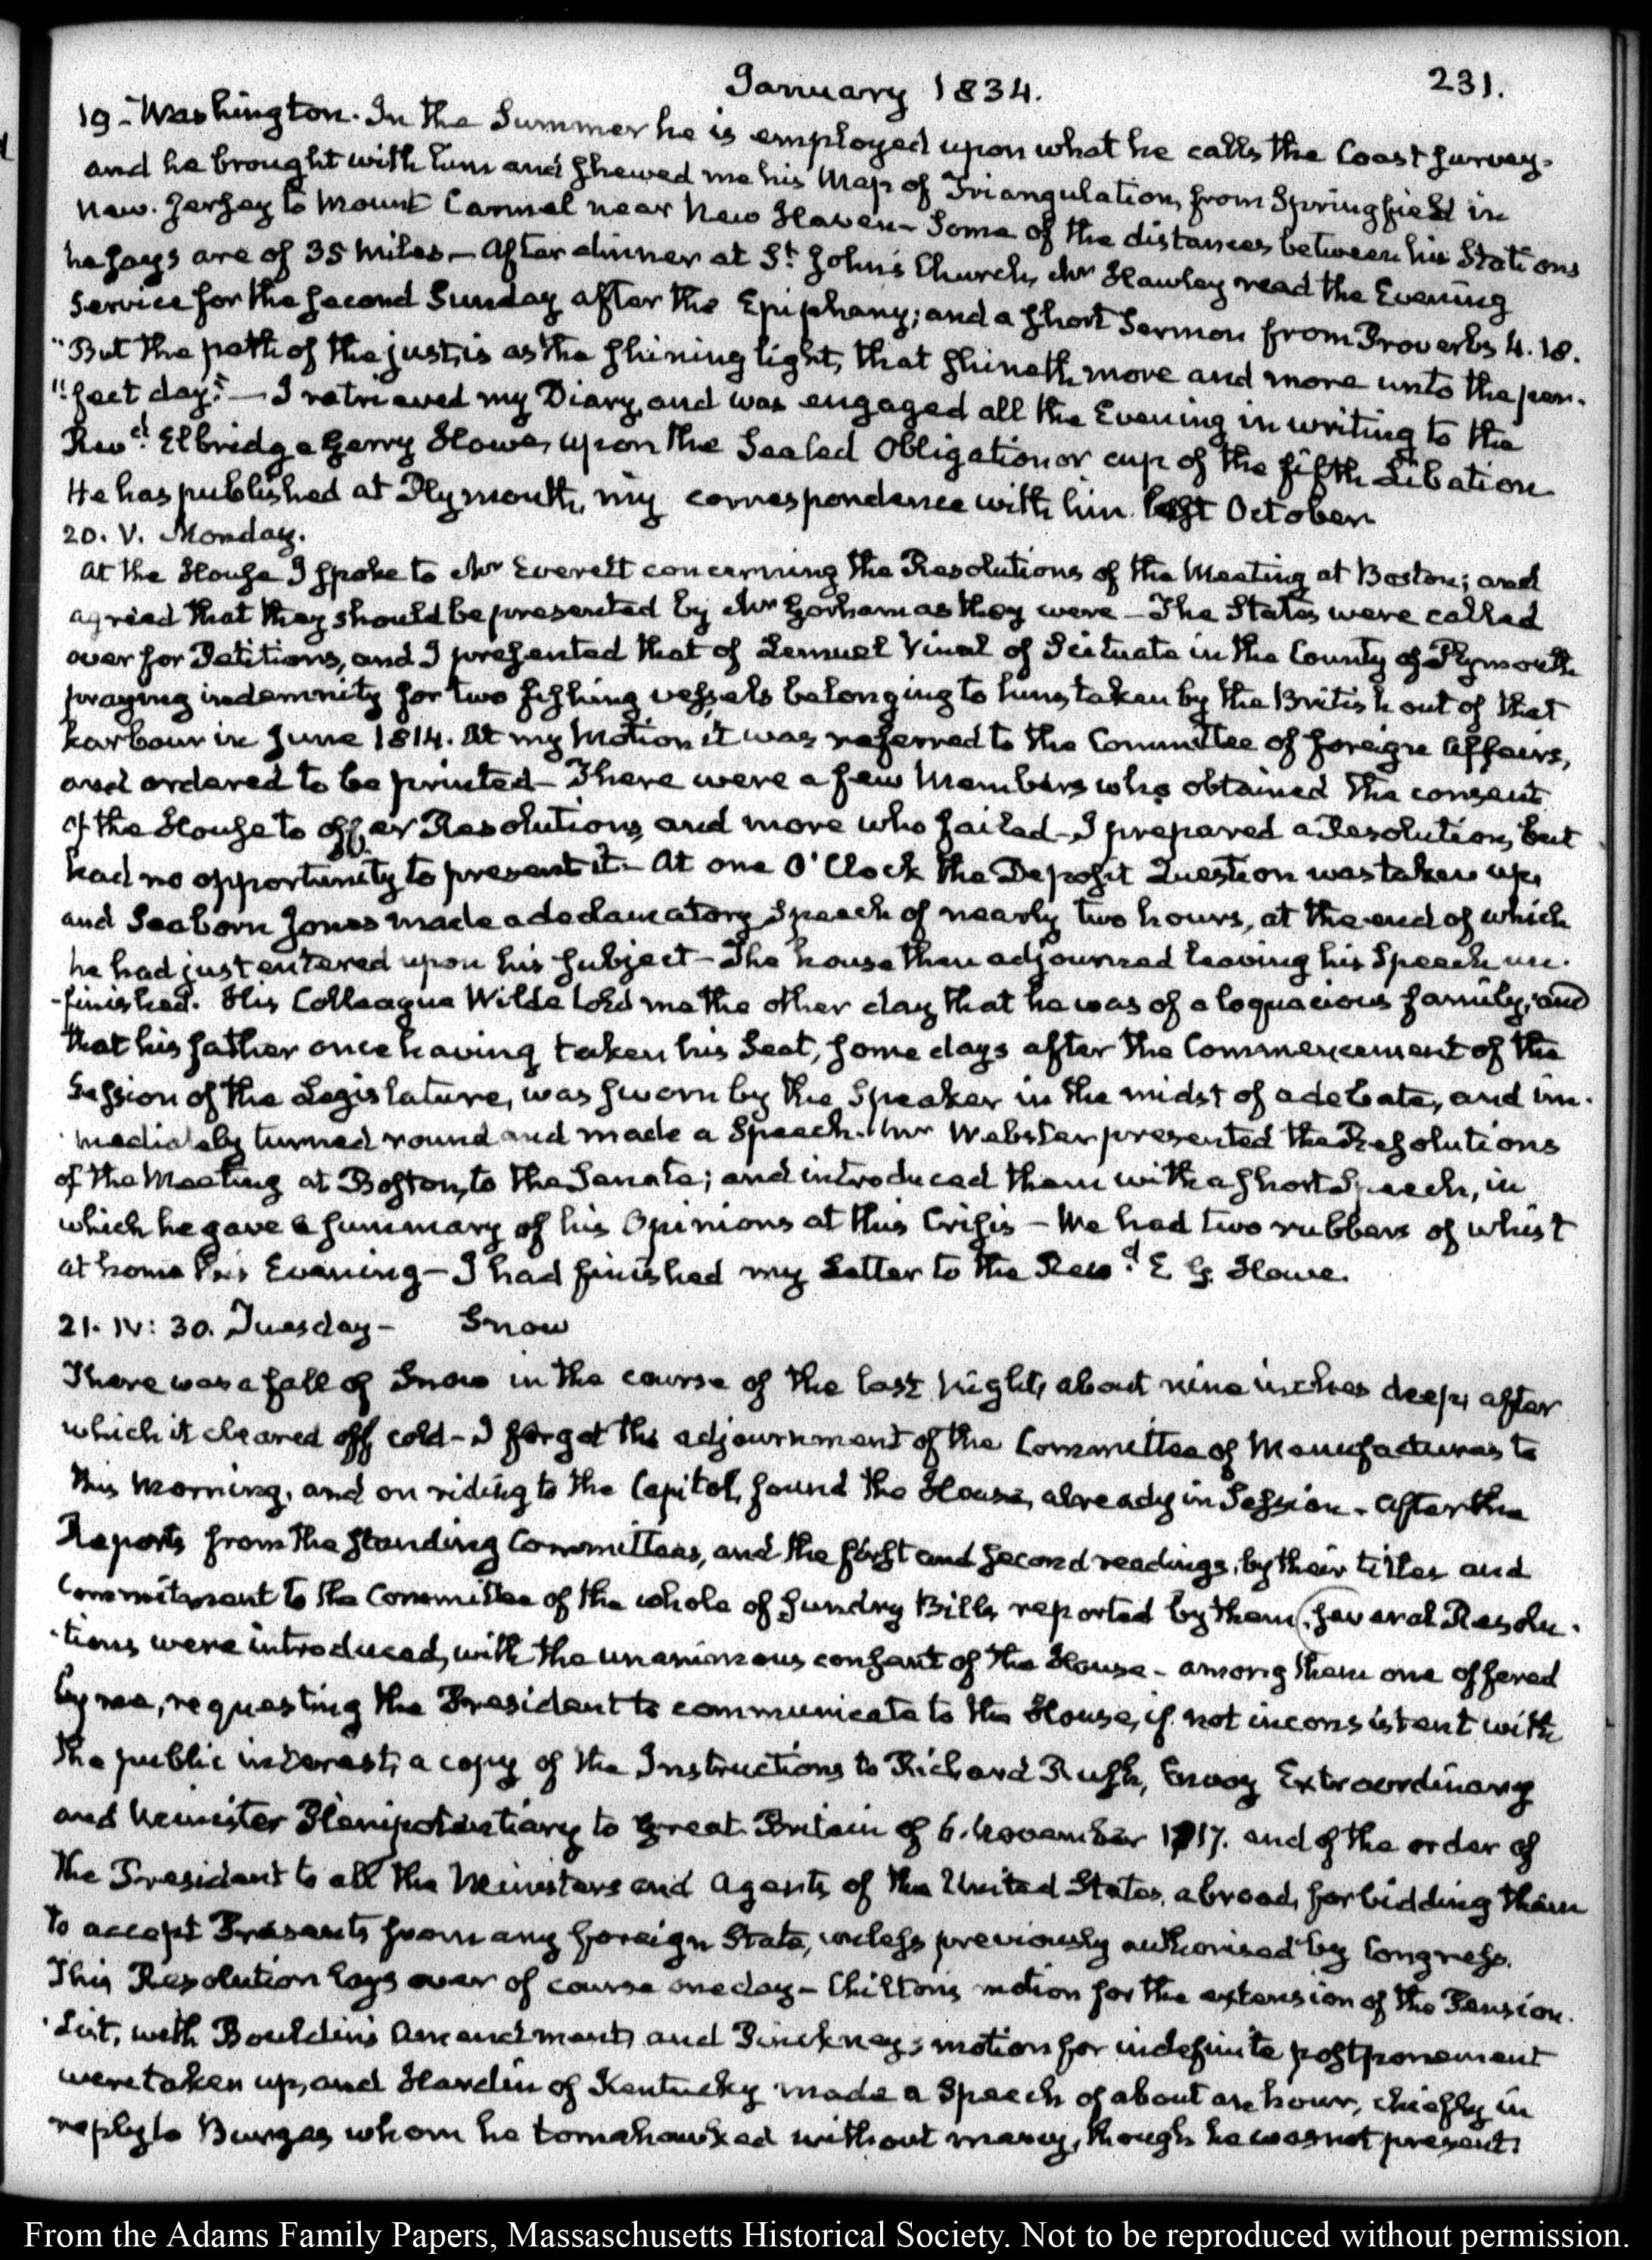 January 1834.
231.
19 - Washington. In the Summer he is employed upon what he calls the Coast survey.
and he brought with him and shewed me his Map of Triangulation, from Springfield in
New-Jersey to Mount Carmel near New Haven - Some of the distances between his Stations
he says are of 35 miles. - After dinner at St. John's Church, Mr Hawley read the Evening
Service for the second Sunday after the Epiphany; and a short Sermon from Proverbs 4. 18.
"But the path of the just, is as the shining light, that shineth more and more unto the per-
"fect day." - I retrieved my Diary, and was engaged all the Evening in writing to the
Revd. Elbridge Gerry Howe, upon the Sealed Obligation or cup of the fifth Libation
He has published at Plymouth, my correspondence with him last October
20. V. Monday.
At the House I spoke to Mr Everett concerning the Resolutions of the Meeting at Boston; and
agreed that they should be presented by Mr Gorham as they were - The States were called
over for Petitions, and I presented that of Lemuel Vinal of Scituate in the County of Plymouth
praying indemnity for two fishing vessels belonging to him, taken by the British out of that
harbour in June 1814. At my Motion it was referred to the Committee of foreign Affairs,
and ordered to be printed - There were a few Members who obtained the consent
of the House to offer Resolutions, and more who failed - I prepared a Resolution, but
had no opportunity to present it - At one O'Clock the Deposit Question was taken up,
and Seaborn Jones made a declamatory Speech of nearly two hours, at the end of which
he had just entered upon his subject - The house then adjourned leaving his Speech un-
-finished. His Colleague Wilde told me the other day that he was of a loquacious family, and
that his father once having taken his Seat, some days after the Commencement of the
Session of the Legislature, was sworn by the Speaker in the midst of a debate, and im-
-mediately turned round and made a Speech. Mr Webster presented the Resolutions
of the Meeting at Boston, to the Senate; and introduced them with a short Speech, in
which he gave a summary of his Opinions at this Crisis - We had two rubbers of whist
at home this Evening - I had finished my Letter to the Revd. E G. Howe.
21. IV: 30. Tuesday - Snow
There was a fall of Snow in the course of the last Night, about nine inches deep, after
which it cleared off cold - I forgot the adjournment of the Committee of Manufactures to
this Morning, and on riding to the Capitol, found the House, already in Session - After the
Reports from the standing Committees, and the first and second readings, by their titles and
commitment to the Committee of the whole of sundry Bills reported by them, several Resolu-
-tions were introduced, with the unanimous consent of the House - among them one offered
by me, requesting the President to communicate to the House, if not inconsistent with
the public interest, a copy of the Instructions to Richard Rush, Envoy Extraordinary
and Minister Plenipotentiary to Great Britain of 6. November 1817. and of the order of
the President to all the Ministers and Agents of the United States, abroad, forbidding them
to accept Presents from any foreign State, unless previously authorised by Congress.
This Resolution lays over of course one day - Chilton's motion for the extension of the Pension-
-List, with Bouldin's Amendment, and Pinckney's motion for indefinite postponement
were taken up, and Hardin of Kentucky made a Speech of about an hour, chiefly in
reply to Burges whom he tomahawked without mercy, though he was not present.
From the Adams Family Papers, Massaschusetts Historical Society. Not to be reproduced without permission.